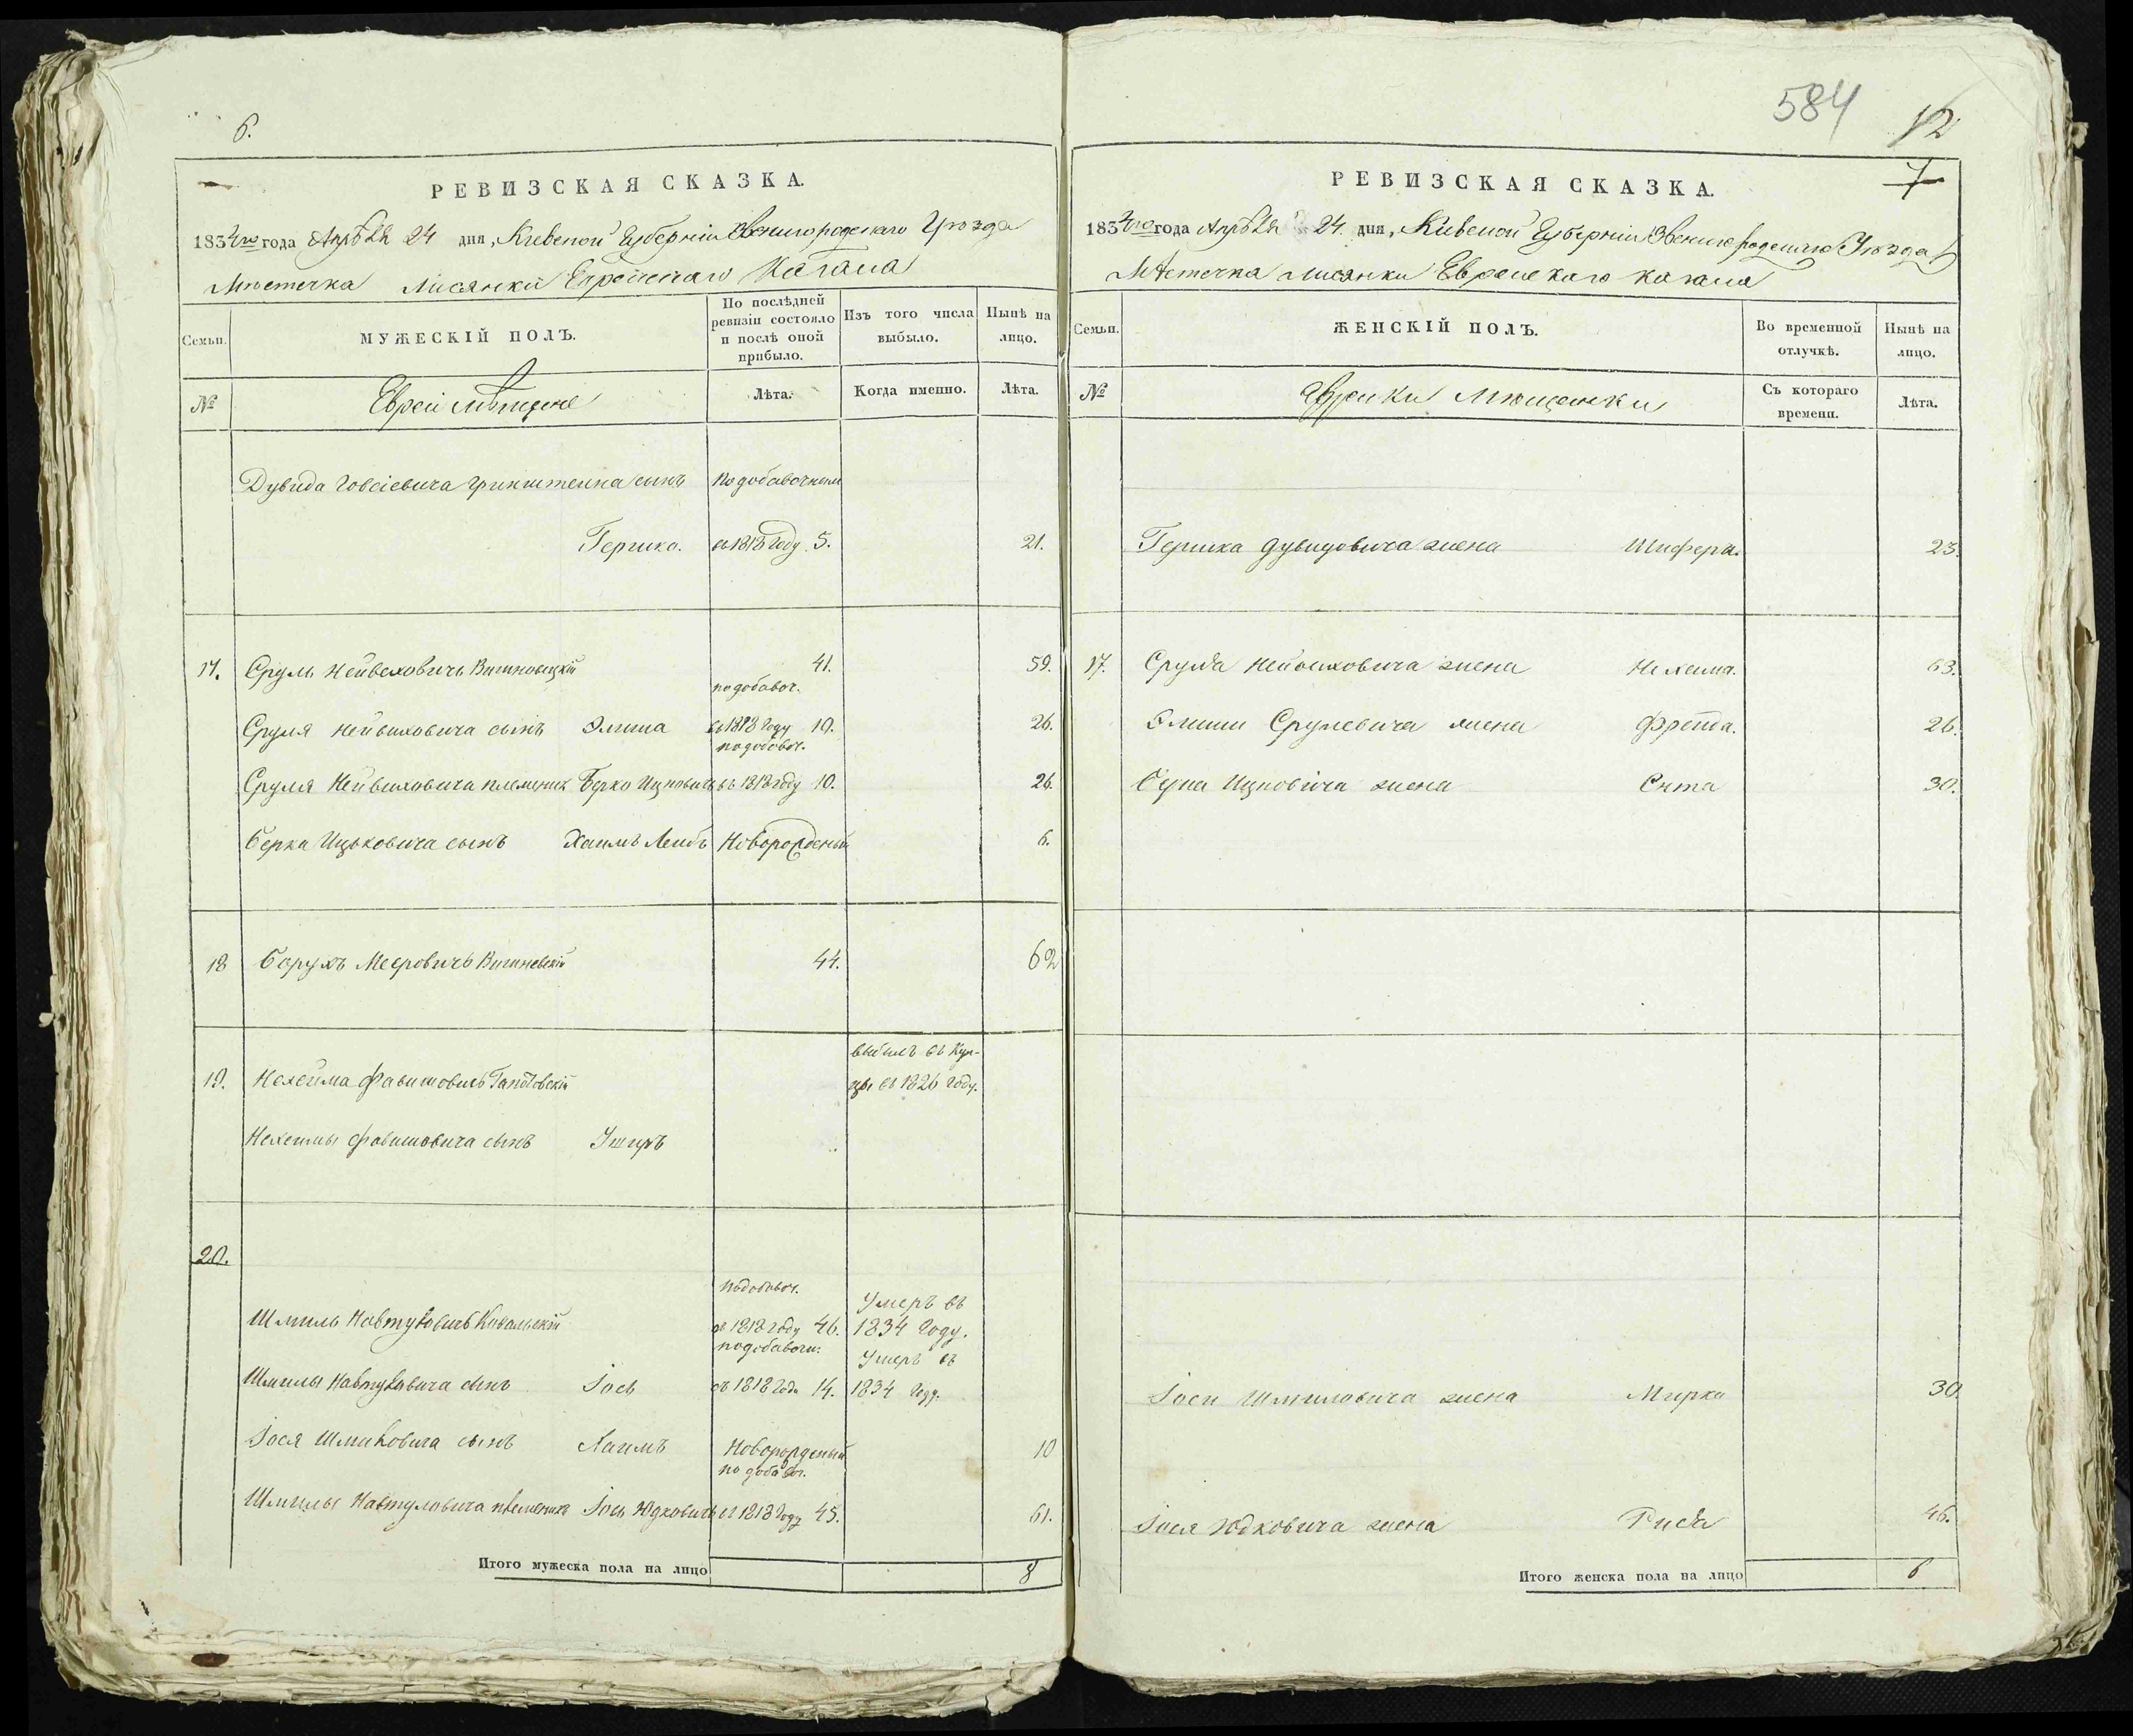 6.
РЕВИЗСКАЯ СКАЗКА.
1834го года Апрѣля 24 дня, Кіевской Губерніи Звенигородскаго Уѣзда
Мѣстечка Лисянки Еврейскаго Кагала
Семьи.
МУЖЕСКІЙ ПОЛЪ.
По послѣдней ревизіи состояло и послѣ оной прибыло.
Изъ того числа выбыло.
Нынѣ на лицо.
№
Евреи Мѣщане
Лѣта.
Когда именно.
Лѣта.
Дувида Іовсіевича Гринштейна сынъ По добавочной
Гершко. въ 1818 Году 5. 21.
17. Сруль Нейвеховичъ Вишновецкій 41. 59.
по добавоч.
Сруля Нейвиховича сынъ Элиша въ 1818 Году 10. 26.
по добавоч.
Сруля Нейвиховича племеник Берко Ицковичъ въ 1818 году 10. 26.
Берка Ицьковича сынъ Хаимъ Лейбъ Новорожденый 6.
18 Борухъ Мееровичъ Вишневскій 44. 62
выбылъ въ Куп-
19. Нехейма Фавишовичъ цы въ 1826 Году.
Нехемыи Фавишовича сынъ Ушеръ
20.
по добавоч. Умеръ въ
Шмиль Навтуловичъ Ковальскій въ 1818 году 46. 1834 Году.
по добавоч: Умеръ въ
Шмилы Навтуловича сынъ Іось въ 1818 Года 14. 1834 Году.
Іося Шмиловича сынъ Хаимъ Новорожденый 10
по добавоч.
Шмилы Навтуловича племеникъ Іось Юдковичъ въ 1818 Году 45. 61.
Итого мужеска пола на лицо 8
584
12
7
РЕВИЗСКАЯ СКАЗКА.
1834го года Апрѣля 24. дня, Кіевской Губерніи Звенигородскаго Уѣзда
Мѣстечка Лисянки Еврейскаго Кагала
Семьи.
ЖЕНСКІЙ ПОЛЪ.
Во временной отлучкѣ.
Нынѣ на лицо.
№
Еврейки Мѣщанки
Съ котораго времени.
Лѣта.
Гершка Дувидовича жена Шифра. 23.
17. Срула Нейвиховича жена Нехеима. 63.
Элиши Срулевича жена Фрейда. 26.
Берка Ицковича жена Сита 30.
Іоси Шмиловича жена Мирка 30.
Іося Юдковича жена Рися 46.
Итого женска пола на лицо 6